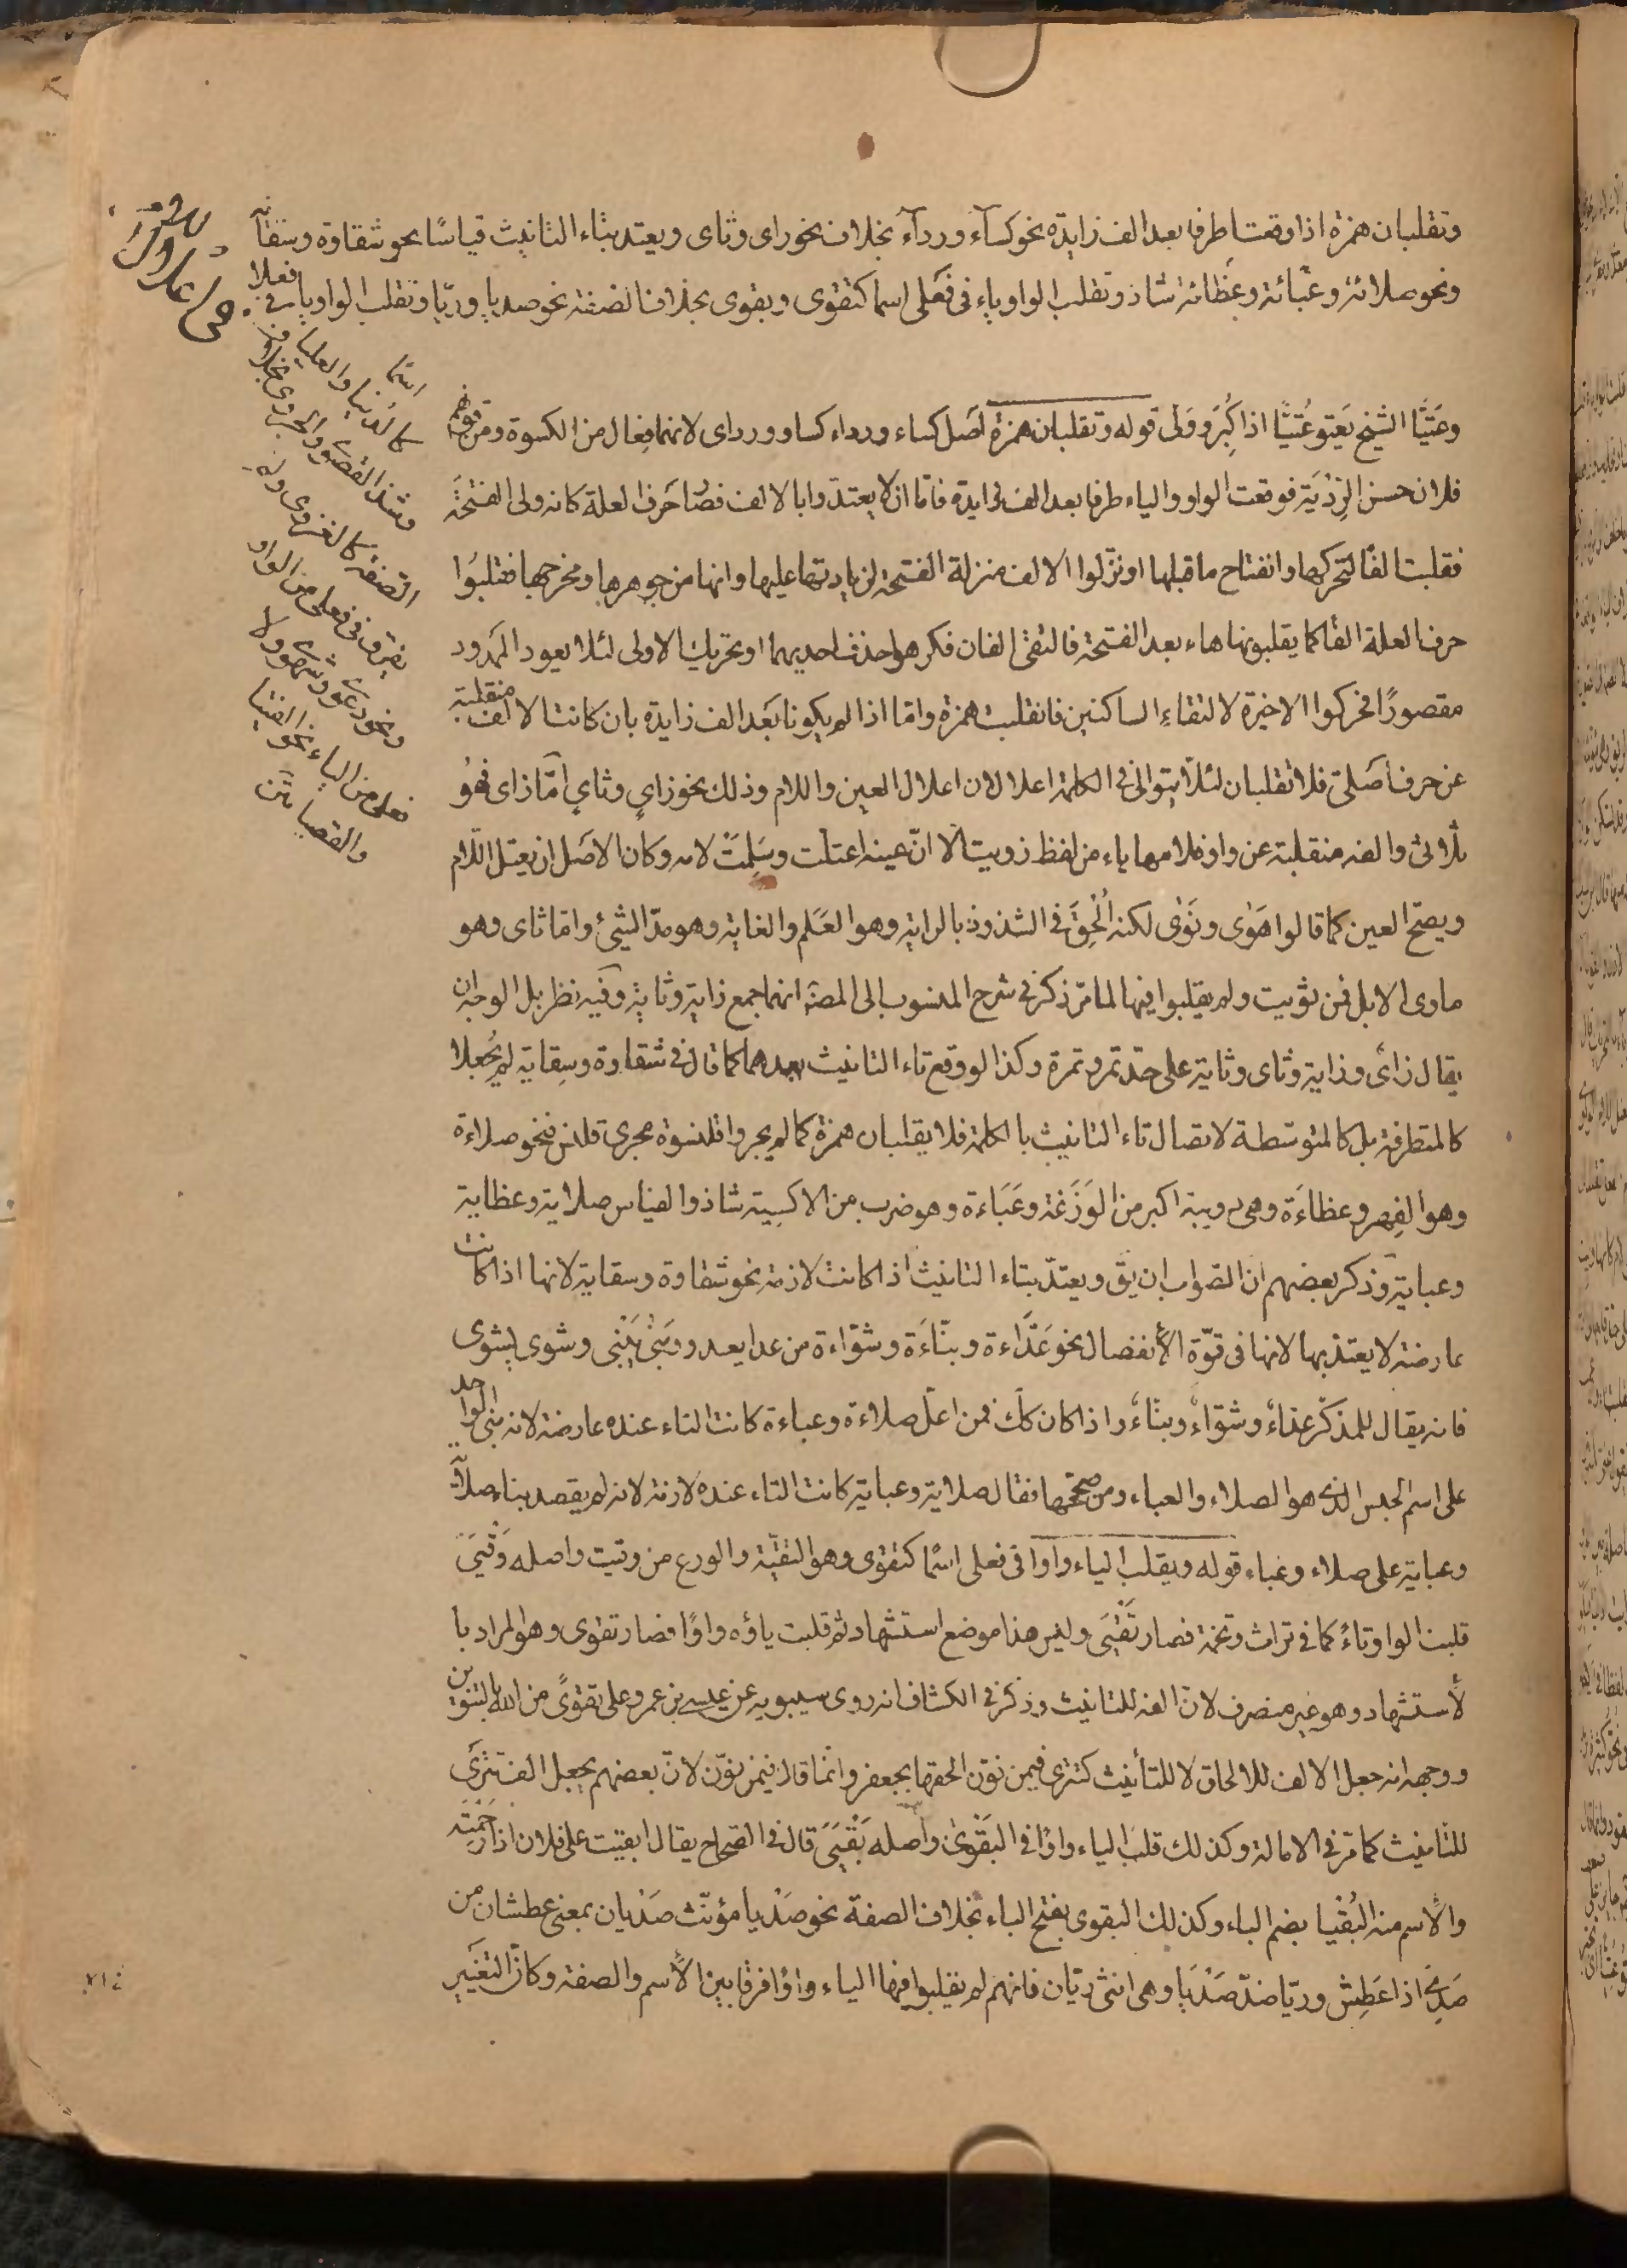 وتقلبان همزة اذا وقعتا طرفا بعد الف زايدة نحو كساء ورداء بخلاف نحو راى وثاى ويعتد بتاء التانيث قياسًا نحو شقاوة وسقاية
ونحو صلائة وعبائة وعظائة شاذ وتقلب الواو ياء فى فعلى اسما كتقوى وبقوى بخلاف الصفة نحو صديا وريّا وتقلب الواو ياء فى فعلى
اسمًا
كالدنيا والعليا
وشذ القصوى والحزوى بخلاف
الصفة كالغزوى ولم
يفرق فى فعلى من الواو
ونحو دعوى وشهوى ولا
فعلى من الياء نحو الفتيا
والقضيا
وعَتَيَّا الشيخ يَعتو عُتيًّا اذا كَبُرَ ووَلّى قوله وتقلبان همزة اصل كساء ورداء كساو ورداى لانهما فِعال من الكسوة ومن قولهم
فلان حسن الرِّدْيَة فوقعت الواو والياء طرفا بعد الف زايدة فاما ان لا يعتدّوا بالالف فصار حَرف العلة كانه ولى الفتحة
فقلبت الفًا لتحركها وانفتاح ما قبلها او نزّلوا الالف منزلة الفتحة لزيادتها عليها وانها من جوهرها ومخرجها فقلبُوا
حرف العلة الفًا كما يقلبونها هاء بعد الفتحة فالتقى الفان فكرهوا حذف احديهما او تحريك الاولى لئلا يعود الممدود
مقصورًا فحركوا الاخيرة لالتقاءِ الساكنين فانقلبت همزة وامّا اذا لم يكونا بَعد الف زايدة بان كانت الالف منقلبة
عن حرف اصلىّ فلا تقلبان لئلّا يتوالى فى الكلمة اعلالان اعلال العين واللام وذلك نحو زاىٍ وثاىٍ امّا زاى فهوُ
ثلاثىّ والفه منقلبة عن واو فلامها ياء من لفظ زويت الا انّ عينه اعتلّت وسَلِمَتْ لامه وكان الاصل ان يعتل اللّام
ويصحّ العين كما قالوا هَوٰى ونَوٰى لكنه اُلْحِقَ فى الشذوذ بالراية وهو العَلَم والغاية وهو مدّ الشيئ وامّا ثاى وهو
ماوى الابل فمن ثويت ولم يقلبوا فيها لما مرّ ذكر فى شرح المنسوب الى المصنف انهما جمع زاية وثاية وفيه نظر بل الوجه ان
يقال زاى وزاية وثاى وثاية على حدّ تمر وتمرة وكذا لو وقع تاء التانيث بعدهما كما قال فى شقاوة وسِقاية لم يُجعلا
كالمتطرفة بل كالمتوسّطة لاتصال تاء التانيث بالكلمة فلا يقلبان همزة كما لم يجروا قلنسوة مجرى قلنس فنحو صلاءة
وهو الفِهر وعظاءَة وهى دويبة اكبر من الوَزَغة وعَبَاءة وهو ضرب من الاكسِية شاذ والقياس صلاية وعظاية
وعباية وذكر بعضهم ان الصّواب ان يقٓ ويعتدّ بتاء التانيث اذا كانت لازمة نحو شقاوة وسقاية لانها اذا كانت
عارضة لا يعتدّ بها لانها فى قوّة الانفصال نحو عَدَّاءة وبنّاءَة وشوّاءة من عدا يعدو وبَنٰى يَبْنى وشوى يشوى
فانه يقال للمذكّر عدّاءٌ وشوّاءٌ وبنّاءٌ واذا كان كك فمن اعلّ صلاءة وعباءة كانت التاء عنده عارضة لانه بنى الواحد
على اسم الجنس الذى هو الصلاء والعباء ومن صحّحها فقال صلاية وعباية كانت التاء عنده لازمة لانه لم يقصد بناء صلاية
وعباية على صلاء وعباء قوله ويقلب الياء واوا فى فعلى اسمًا كتقوى وهو التقيّة والورع من وقيت واصله وَقْيَىٰ
قلبت الواو تاءً كما فى تراث وتخمة فصار تَقْيَى وليس هذا موضع استشهاد ثم قلبت ياؤه واوًا فصار تقوى وهو المراد با
لأستشهاد وهو غير منصرف لانّ الفه للتانيث وذكر فى الكشاف انه روى سيبويه عن عيسى بن عمرو على تقوًى من الله بالتنوين
ووجهه انه جعل الالف للالحاق لا للتأنيث كتترى فيمن نوّن الحقها بجعفر وانّما قال فيمن نوّن لانّ بعضهم يجعل الف تترى
للتانيث كما مرّ فى الامالة وكذلك قلبَ الياء واوًا فى البَقْوىٰ واصله بَقْيَىٰ قال فى الصّحاح يقال ابقيت على فلان اذا رَحِمْتَه
والأسم منه البُقْيا بضم الباء وكذلك البقوى بفتح الباء بخلاف الصفة نحو صَدْيا مؤنّث صَدْيان بمعنى عطشان من
صَدِىَ اذا عَطِشَ وريّا ضدّ صَدْيَا وهى انثى ريّان فانهم لم يقلبوا فيها الياء واوًا فرقًا بين الأسم والصفة وكانّ التغيير